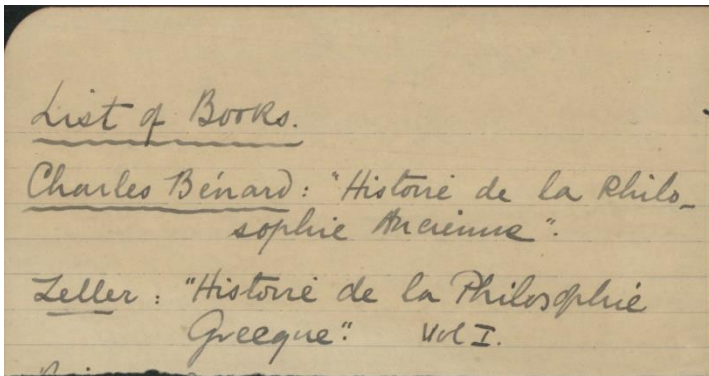 List of Books.
Charles Bénard: "Histoire de la Philo-
sophie Ancienne".
Zeller: "Histoire de la Philosophie
Grecque". Vol I.